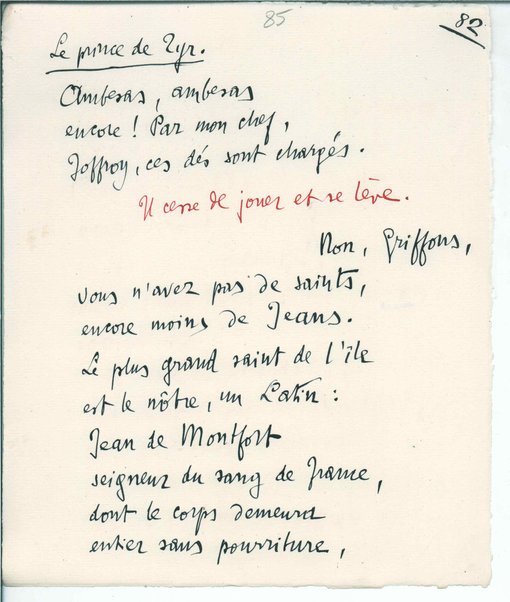 85
82
Le prince de Tyr.
Ambesas, ambesas
encore ! Par mon chef,
Joffroy, ces dés sont chargés.
Il cesse de jouer et se lève.
Non, Griffons,
vous n'avez pas de saints,
encore moins de Jeans.
Le plus grand saint de l'île
est le nôtre, un Latin :
Jean de Montfort
seigneur du sang de France,
dont le corps demeura
entier sans pourriture,